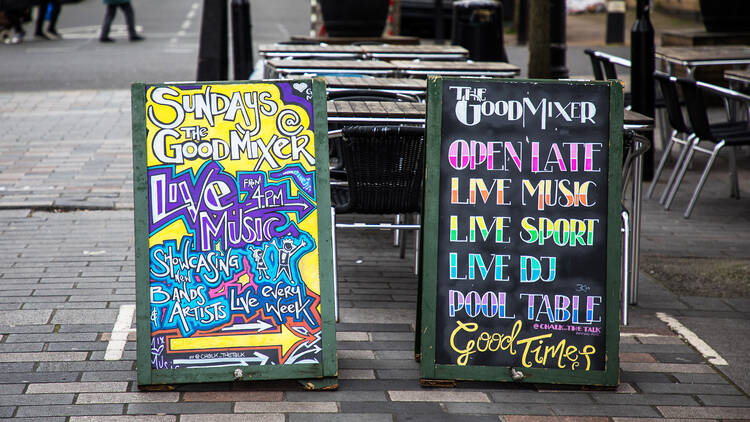 SUNDAYS @
THE
GOODMIXER
LIVE
FROM
4PM
MUSIC
SHOWCASING
NEW
BANDS
& ARTISTS
LIVE EVERY
WEEK
MIX
MUSIC
@CHALK_THETALK
THE
GOODMIXER
OPEN LATE
LIVE MUSIC
LIVE SPORT
LIVE DJ
POOL TABLE
@ CHALK_THE TALK
GOOD TIMES